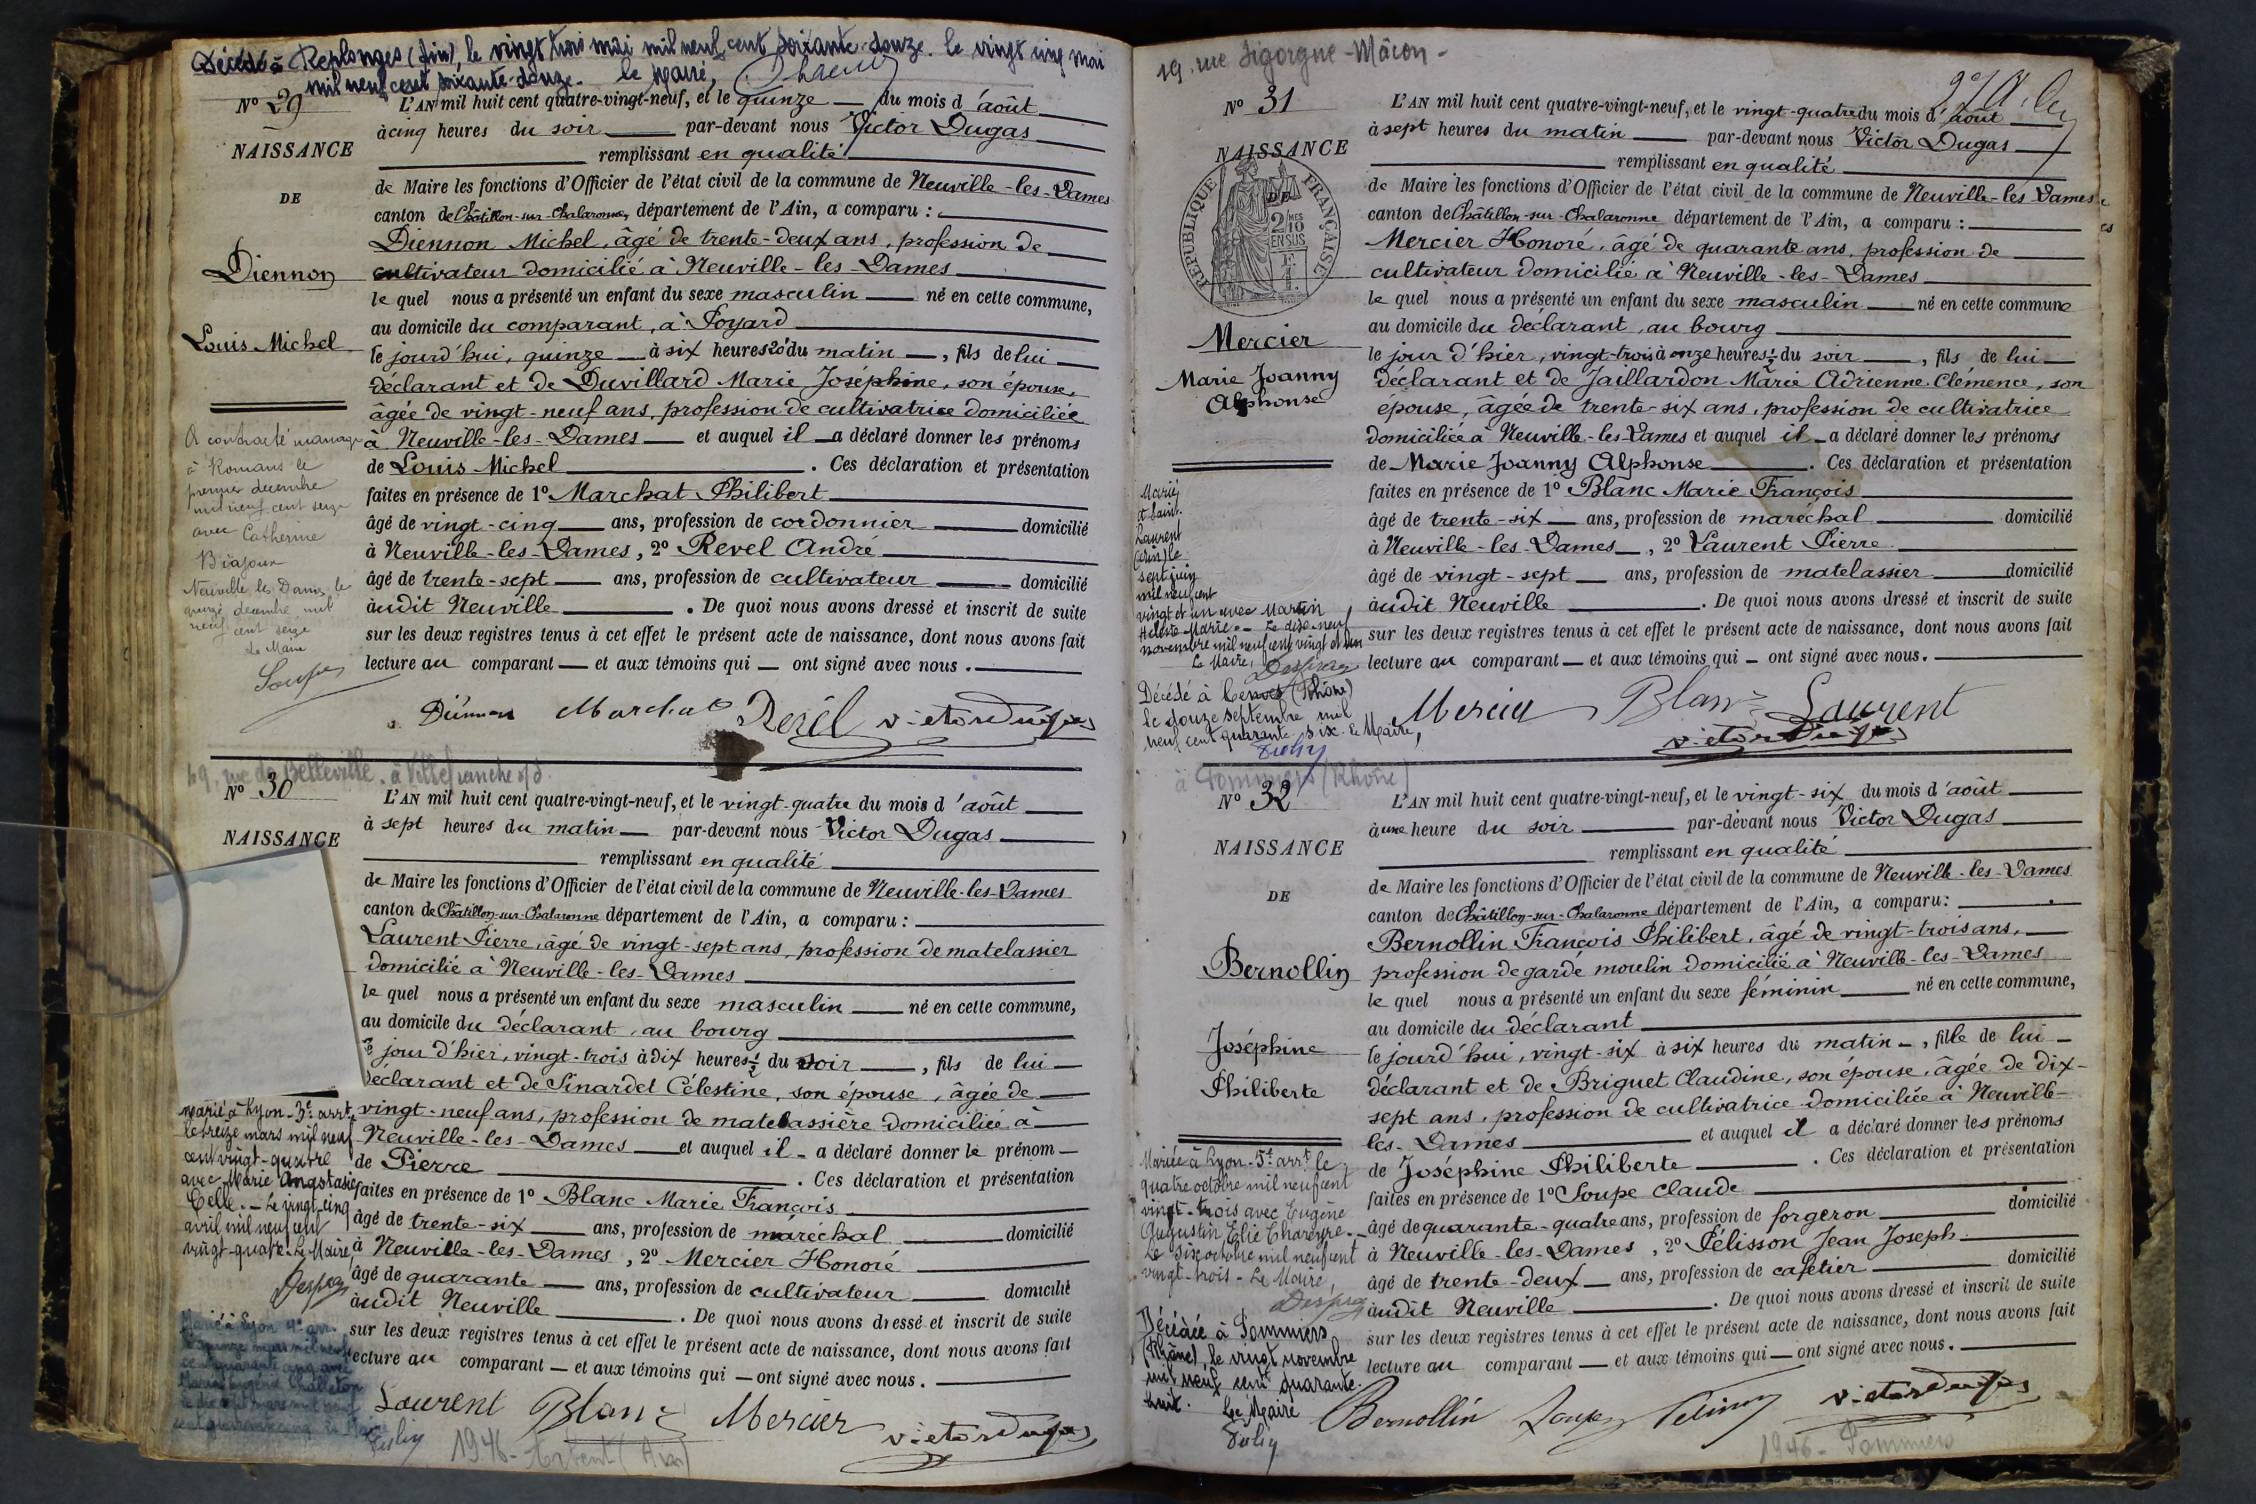 Décédé à Replonges (Ain), le vingt trois mai mil neuf cent soixante-douze. le vingt cinq mai
mil neuf cent soixante-douze. le Maire,
N° 29
NAISSANCE
DE
Diennon
Louis Michel
L'AN mil huit cent quatre-vingt-neuf, et le quinze du mois d'août
à cinq heures du soir par-devant nous Victor Dugas
remplissant en qualité
de Maire les fonctions d'Officier de l'état civil de la commune de Neuville-les-Dames
canton de Châtillon-sur-Chalaronne, département de l'Ain, a comparu :
Diennon Michel, âgé de trente-deux ans, profession de
cultivateur domicilié à Neuville-les-Dames
le quel nous a présenté un enfant du sexe masculin né en cette commune,
au domicile du comparant, à Foyard
le jourd'hui, quinze à six heures 20' du matin, fils de lui
déclarant et de Duvillard Marie Joséphine, son épouse,
âgée de vingt-neuf ans, profession de cultivatrice domiciliée
à Neuville-les-Dames et auquel il a déclaré donner les prénoms
de Louis Michel. Ces déclaration et présentation
faites en présence de 1° Marchat Philibert
âgé de vingt-cinq ans, profession de cordonnier domicilié
à Neuville-les-Dames, 2° Revel André
âgé de trente-sept ans, profession de cultivateur domicilié
audit Neuville. De quoi nous avons dressé et inscrit de suite
sur les deux registres tenus à cet effet le présent acte de naissance, dont nous avons fait
lecture au comparant et aux témoins qui ont signé avec nous.
A contracté mariage
à Romans le
premier décembre
mil neuf cent seize
avec Catherine
Biajoux
Neuville les Dames le
quinze décembre mil
neuf cent seize
Le Maire
Soupe
Diennon Marchat Revel Victor Dugas
49, rue de Belleville, à Villefranche s/S
N° 30
NAISSANCE
L'AN mil huit cent quatre-vingt-neuf, et le vingt-quatre du mois d'août
à sept heures du matin par-devant nous Victor Dugas
remplissant en qualité
de Maire les fonctions d'Officier de l'état civil de la commune de Neuville-les-Dames
canton de Châtillon-sur-Chalaronne département de l'Ain, a comparu :
Laurent Pierre, âgé de vingt-sept ans, profession de matelassier
domicilié à Neuville-les-Dames
le quel nous a présenté un enfant du sexe masculin né en cette commune,
au domicile du déclarant, au bourg
le jour d'hier, vingt-trois à dix heures ½ du soir, fils de lui
déclarant et de Sinardet Célestine, son épouse, âgée de
vingt-neuf ans, profession de matelassière domiciliée à
Neuville-les-Dames et auquel il a déclaré donner le prénom
de Pierre. Ces déclaration et présentation
faites en présence de 1° Blanc Marie François
âgé de trente-six ans, profession de maréchal domicilié
à Neuville-les-Dames, 2° Mercier Honoré
âgé de quarante ans, profession de cultivateur domicilié
audit Neuville. De quoi nous avons dressé et inscrit de suite
sur les deux registres tenus à cet effet le présent acte de naissance, dont nous avons fait
lecture au comparant et aux témoins qui ont signé avec nous.
Marié à Lyon-3e arrt,
le treize mars mil neuf
cent vingt-quatre
avec Marie Anastasie
Celle. - Le vingt-cinq
avril mil neuf cent
vingt-quatre. Le Maire,
Marié à Lyon 4e arr.
Laurent Blanc Mercier Victor Dugas
1946 - Arbent (Ain)
19, rue Sigorgne - Mâcon -
N° 31
NAISSANCE
DE
RÉPUBLIQUE FRANÇAISE
2/10 MES EN SUS
Mercier
Marie Joanny
Alphonse
L'AN mil huit cent quatre-vingt-neuf, et le vingt-quatre du mois d'août
à sept heures du matin par-devant nous Victor Dugas
remplissant en qualité
de Maire les fonctions d'Officier de l'état civil de la commune de Neuville-les-Dames
canton de Châtillon-sur-Chalaronne département de l'Ain, a comparu :
Mercier Honoré, âgé de quarante ans, profession de
cultivateur domicilié à Neuville-les-Dames
le quel nous a présenté un enfant du sexe masculin né en cette commune
au domicile du déclarant, au bourg
le jour d'hier, vingt-trois à onze heures ½ du soir, fils de lui
déclarant et de Jaillardon Marie Adrienne Clémence, son
épouse, âgée de trente-six ans, profession de cultivatrice
domiciliée à Neuville-les-Dames et auquel il a déclaré donner les prénoms
de Marie Joanny Alphonse. Ces déclaration et présentation
faites en présence de 1° Blanc Marie François
âgé de trente-six ans, profession de maréchal domicilié
à Neuville-les-Dames, 2° Laurent Pierre
âgé de vingt-sept ans, profession de matelassier domicilié
audit Neuville. De quoi nous avons dressé et inscrit de suite
sur les deux registres tenus à cet effet le présent acte de naissance, dont nous avons fait
lecture au comparant et aux témoins qui ont signé avec nous.
Marié
à Saint-
Laurent
(Ain) le
sept juin
mil neuf cent
vingt et un avec Martin
Marie. - Le dix-neuf
novembre mil neuf cent vingt et un
Le Maire,
Décédé à (Rhône)
le douze septembre mil
neuf cent quarante-six. Le Maire,
Mercier Blanc Laurent
Victor Dugas
à Pommiers (Rhône)
N° 32
NAISSANCE
DE
Bernollin
Joséphine
Philiberte
L'AN mil huit cent quatre-vingt-neuf, et le vingt-six du mois d'août
à une heure du soir par-devant nous Victor Dugas
remplissant en qualité
de Maire les fonctions d'Officier de l'état civil de la commune de Neuville-les-Dames
canton de Châtillon-sur-Chalaronne département de l'Ain, a comparu :
Bernollin François Philibert, âgé de vingt-trois ans,
profession de garde moulin domicilié à Neuville-les-Dames
le quel nous a présenté un enfant du sexe féminin né en cette commune,
au domicile du déclarant
le jourd'hui, vingt-six à six heures du matin, fille de lui
déclarant et de Briguet Claudine, son épouse, âgée de dix-
sept ans, profession de cultivatrice domiciliée à Neuville-
les-Dames et auquel il a déclaré donner les prénoms
de Joséphine Philiberte. Ces déclaration et présentation
faites en présence de 1° Soupe Claude
âgé de quarante-quatre ans, profession de forgeron domicilié
à Neuville-les-Dames, 2° Pélisson Jean Joseph
âgé de trente-deux ans, profession de cafetier domicilié
audit Neuville. De quoi nous avons dressé et inscrit de suite
sur les deux registres tenus à cet effet le présent acte de naissance, dont nous avons fait
lecture au comparant et aux témoins qui ont signé avec nous.
Mariée à Lyon-5e arrt le
quatre octobre mil neuf cent
vingt-trois avec Eugène
Augustin Elie Chareyre. -
Le six octobre mil neuf cent
vingt-trois - Le Maire,
Décédée à Pommiers
(Rhône), le vingt novembre
mil neuf cent quarante-
huit. Le Maire
Bernollin Soupe Pélisson Victor Dugas
1946 - Pommiers